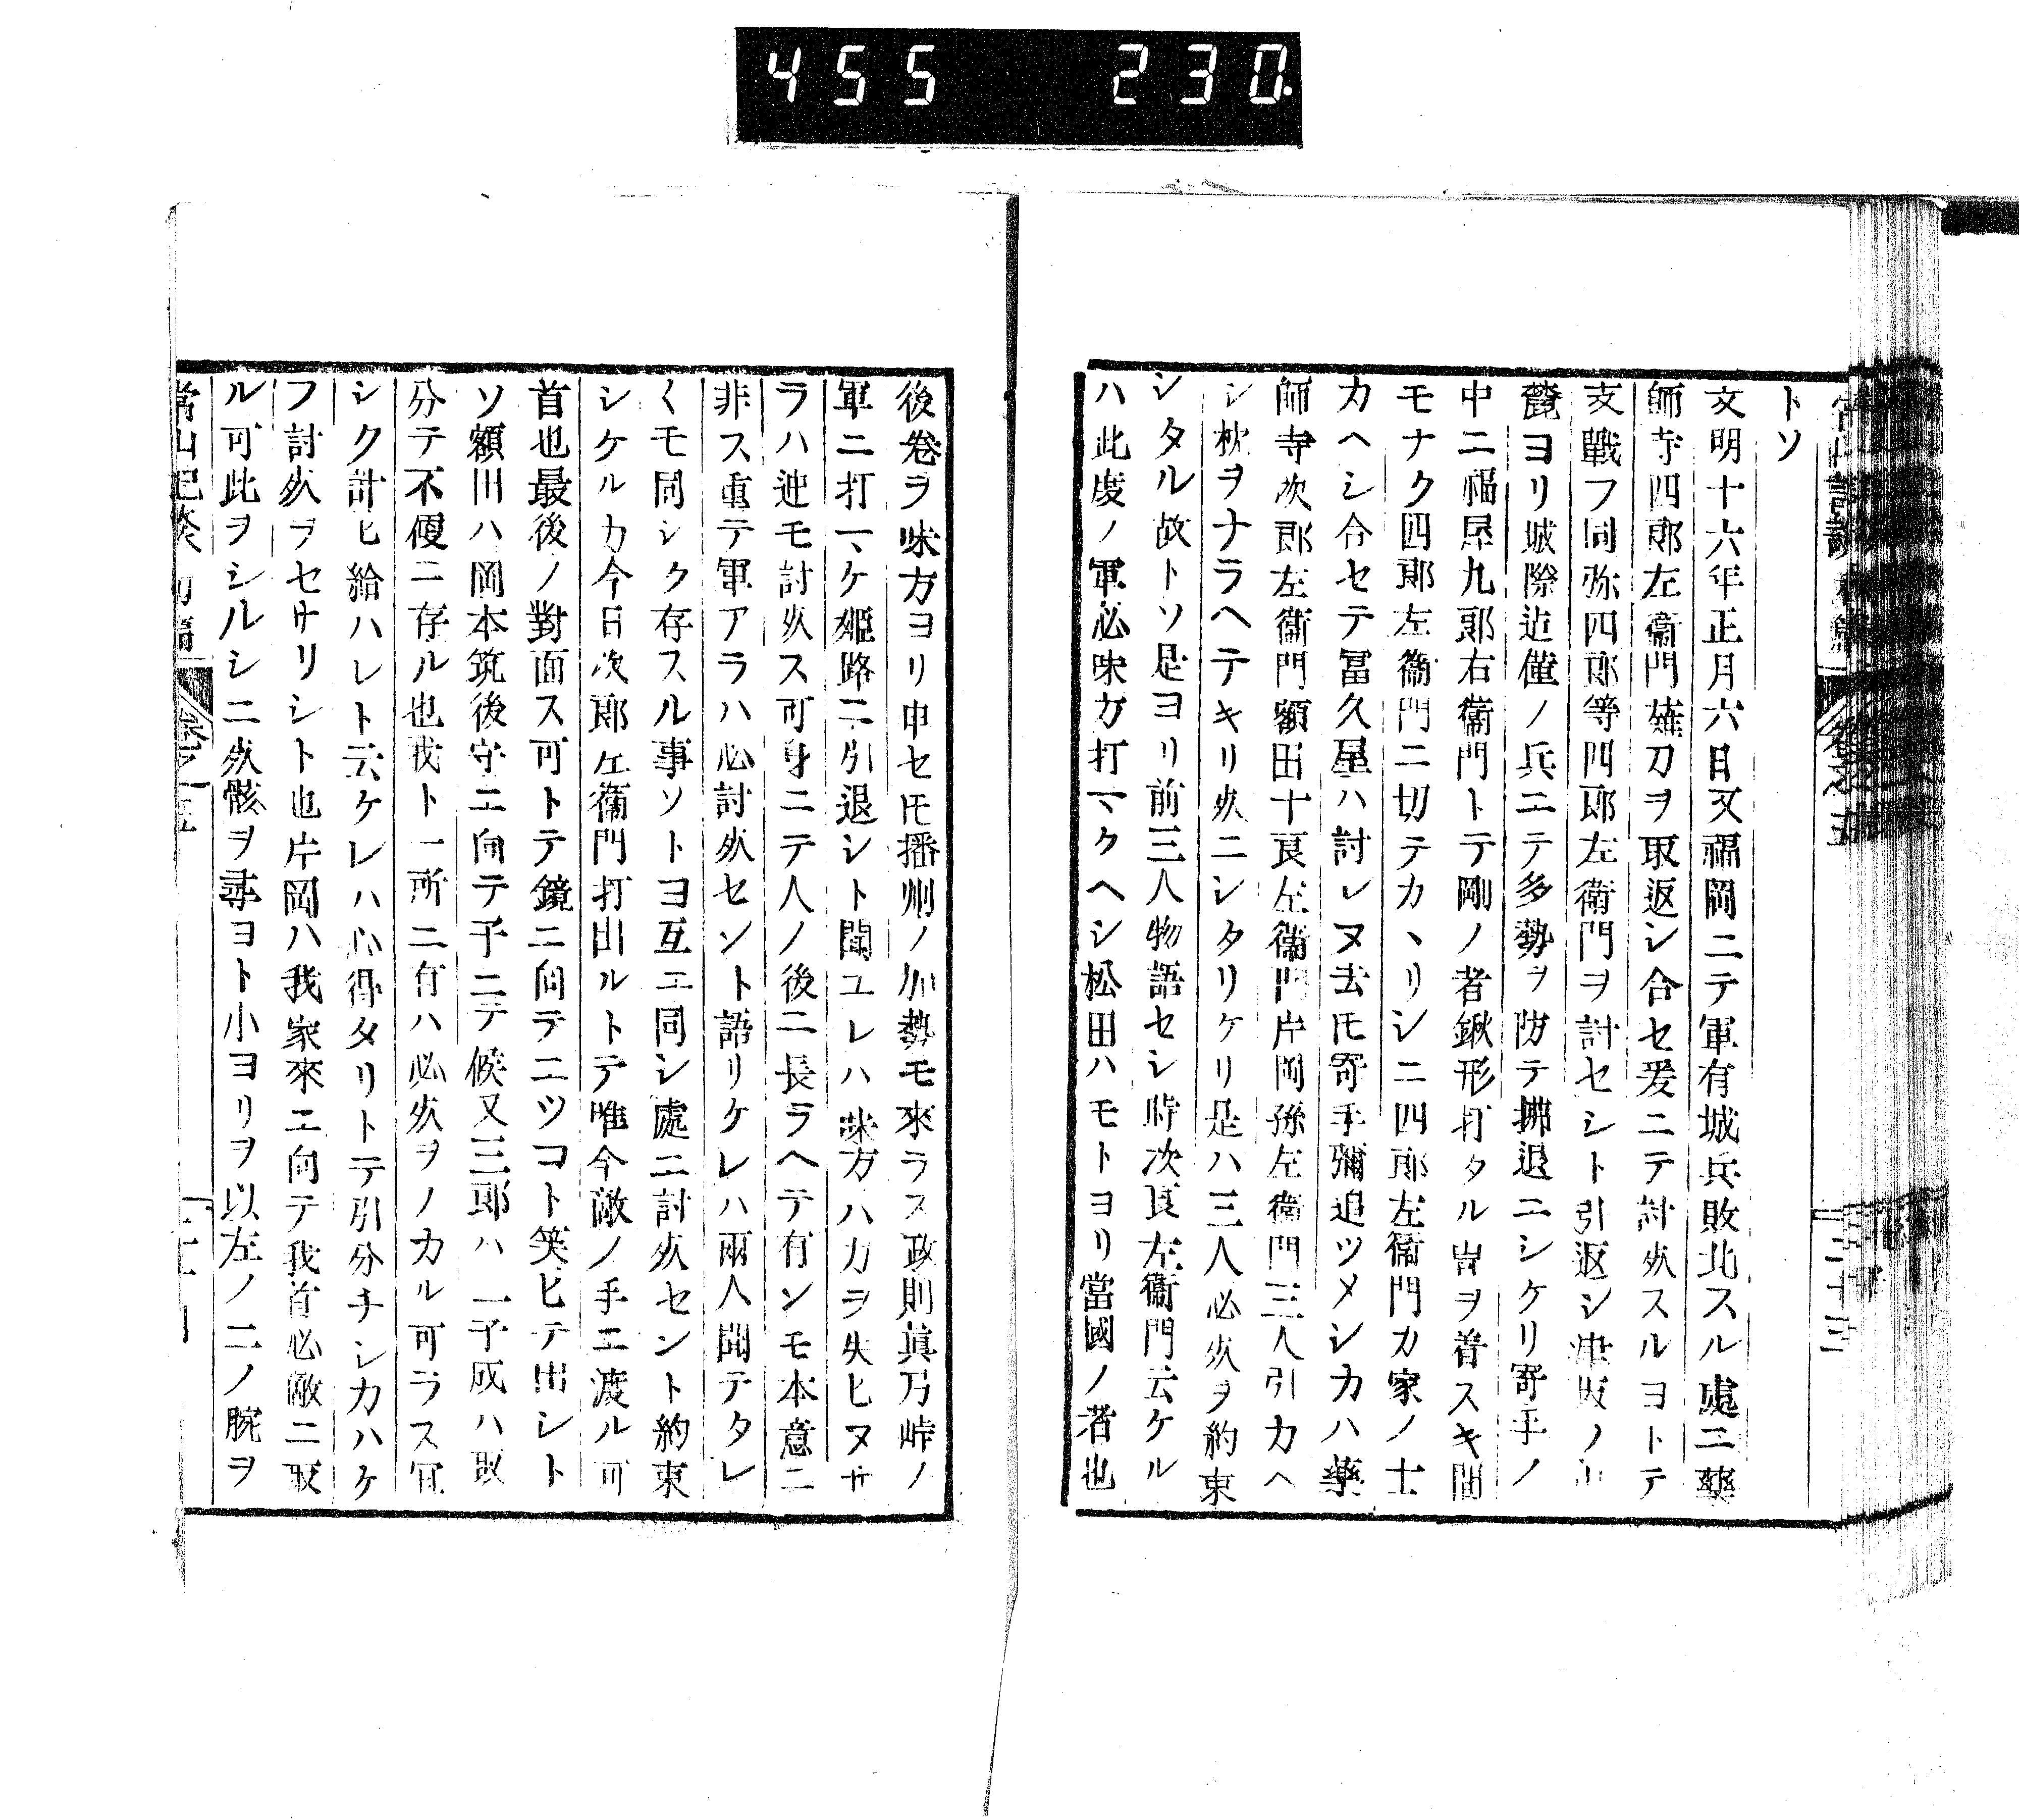 455 230
トソ
文明十六年正月六日又福岡ニテ軍有城兵敗北スル處ニ藥
師寺四郎左衞門薙刀ヲ取返シ合セ爰ニテ討死スルヨトテ
支戰フ同弥四郎等四郎左衛門ヲ討セシト引返シ津坂ノ
麓ヨリ城際迠僅ノ兵ニテ多勢ヲ防テ拂退ニシケリ寄手ノ
中ニ福屋九郎右衞門トテ剛ノ者鍬形打タル冑ヲ着スキ間
モナク四郎左衞門ニ切テカヽリシニ四郎左衞門カ家ノ士
カヘシ合セテ冨久屋ハ討レヌ去𪜈寄手彌追ツメシカハ藥
師寺次郎左衞門額田十良左衞門片岡孫左衞門三人引カヘ
シ枕ヲナラヘテキリ死ニシタリケリ是ハ三人必死ヲ約束
シタル故トソ是ヨリ前三人物語セシ時次良左衞門云ケル
ハ此度ノ軍必味方打マクヘシ松田ハモトヨリ當國ノ者也
後卷ヲ味方ヨリ申セ𪜈播州ノ加勢モ來ラス政則眞乃峠ノ
軍ニ打マケ姫路ニ引退シト聞ユレハ味方ハ力ヲ失ヒヌサ
ラハ迚モ討死ス可身ニテ人ノ後ニ長ラヘテ有ンモ本意ニ
非ス重テ軍アラハ必討死セント語リケレハ兩人聞テタレ
〱モ同シク存スル事ソトヨ互ニ同シ處ニ討死セント約束
シケルカ今日次郎左衞門打出ルトテ唯今敵ノ手エ渡ル可
首也最後ノ對面ス可トテ鏡ニ向テニツコト笑ヒテ出シト
ソ額田ハ岡本筑後守ニ向テ予ニテ候又三郎ハ一予成ハ取
分テ不便ニ存ル也我ト一所ニ有ハ必死ヲノカル可ラス宜
シク計ヒ給ハレト云ケレハ心得タリトテ引分チシカハケ
フ討死ヲセサリシト也片岡ハ我家來ニ向テ我首必敵ニ取
ル可此ヲシルシニ死骸ヲ尋ヨト小ヨリヲ以左ノ二ノ腕ヲ
常山紀談